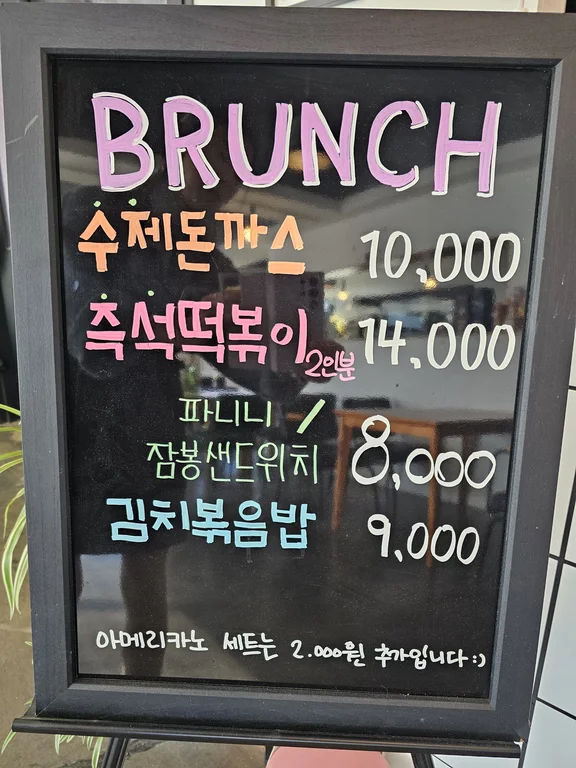 BRUNCH
수제돈까스 10,000
즉석떡볶이 2인분 14,000
파니니 /
잠봉샌드위치 8,000
김치볶음밥 9,000
아메리카노 세트는 2.000원 추가입니다:)